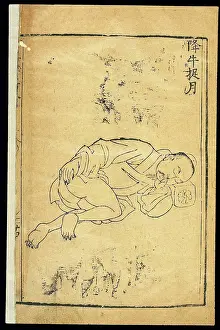 降牛捉月